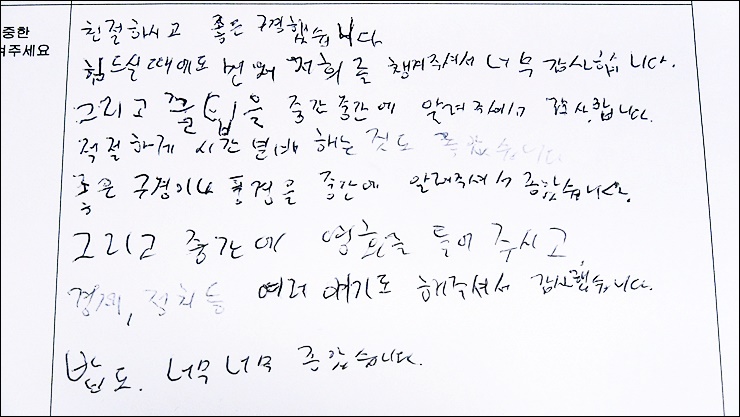 중한
겨주세요
친절하시고 좋은 구경했습니다
힘드실때에도 먼저 저희를 챙겨주셔서 너무 감사합니다.
그리고 꿀팁을 중간중간에 알려주셔서 감사합니다.
적절하게 시간분배 해는것도 좋았습니다
좋은 구경이나 풍경을 중간에 알려주셔서 좋았습니다.
그리고 중간에 영화를 틀어주시고
경제, 정치등 여러 얘기도 해주셔서 감사했습니다.
밥도. 너무너무 좋았습니다.